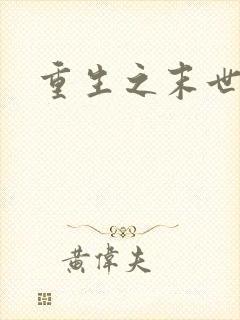 重生之末世
黄偉夫